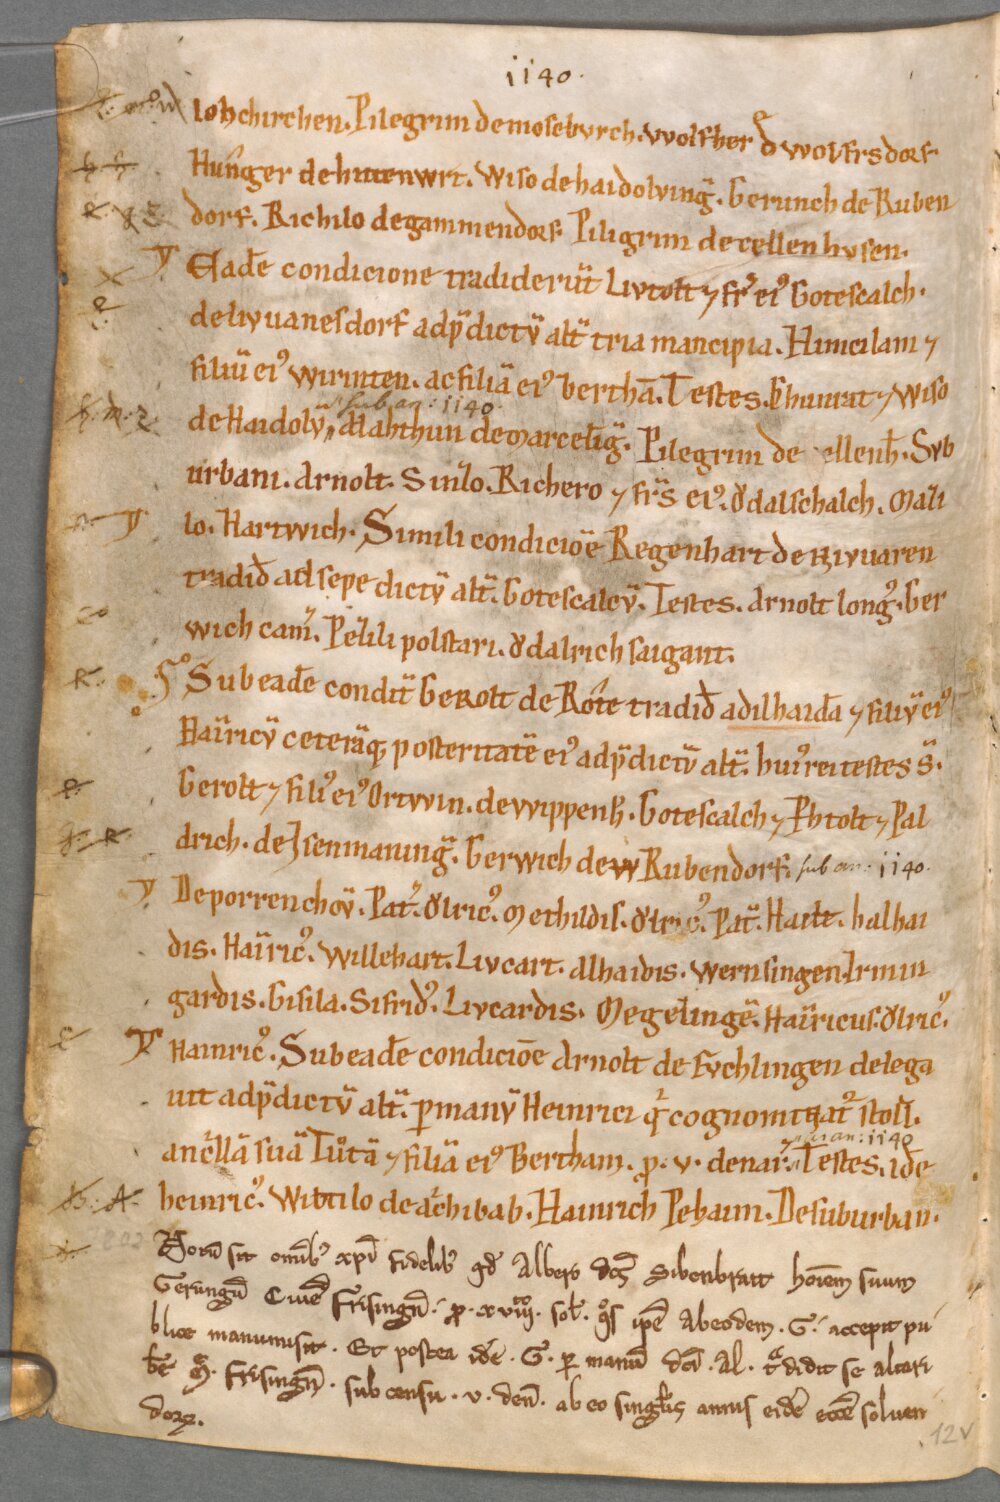 1140.
lohchirchen. Pilegrim de moseburch. Wolfher d̄ wolfrsdorf
Hun̄ger de hittenwrt. Wiso de haidolvinḡ. Gerunch de Ruben
dorf. Richilo de gammendorf Piligrim de cellenhusen.
Eadē condicione tradiderūt Livtolt ⁊ fr̄ ei᾽ Gotescalch.
de livuanesdorf ad p̄dictū alt̄ tria mancipia. Himcilam ⁊
filiū ei᾽ wirinten. ac filiā ei᾽ berthā. Testes. Chunrat ⁊ wiso
sub an: 1140
de Haidolv̄. Mahthuni de marceliḡ. Pilegrim de cellenh̄. Sub
urbani. Arnolt. Sinilo. Richero ⁊ fr̄s ei᾽. Ŏdalschalch. Mali
lo. Hartwich. Simili condiciōe Regenhart de
tradid̄ ad sepe dictū alt̄. Gotescalcū. Testes. Arnolt long᾽. Ger
wich cam̄. Pelili polstari. Ŏdalrich saigant.
Sub eadē condit̄ Gerolt de Rôte tradid̄ adilhaidā ⁊ filiū ei᾽
Hainricū ceterāq; posteritatē ei᾽ ad p̄dictū alt̄. hui᾽ rei testes s̄.
Gerolt ⁊ fili᾽ ei᾽ Ortwin. de wippenh̄. Gotescalch ⁊ Phtolt ⁊ Pal
drich. de Isenmaninḡ. Gerwich de w Rubendorf. sub an: 1140.
De porrenchoū. Pat̄. Ŏlric᾽. Methildis. Ŏlric᾽. Pat̄. Hailt. halhai
dis. Hainric᾽. Willebart. Livcart. Alhaidis. Wernsingen. Irmin
gardis. Gisila. Sifrid᾽. Livcardis. Megelingē. Hainricus. Ŏlric᾽.
Hainric᾽. Sub eadē condiciōe Arnolt de Evchlingen delega
uit ad p̄dictū alt̄. p manū Heinrici q̄ cognominat᾽ stoll.
sub an: 1140
ancillā suā Tutā ⁊ filiā ei᾽ Bertham. p. v. denar̄. Testes. idē
heinric᾽. Wibtilo de achibab. Hainrich Pehaim. De suburban.
Notū sit omīb᾽ xpī fidelib᾽ qd̄ Albero Sibenbratt hoīem suum
Gerungū Ciuē Frisingn̄. p. xviii. sol. q̄s ipē Ab eodem. G. accepit pu
blice manumisit. Et postea idē. G. p manū dc̄i. Al. tradidit se altari
bē M. Frisingn̄. sub censu. v. den̄. ab eo singlis annis eidē eccē soluen
dorꝝ.
12v